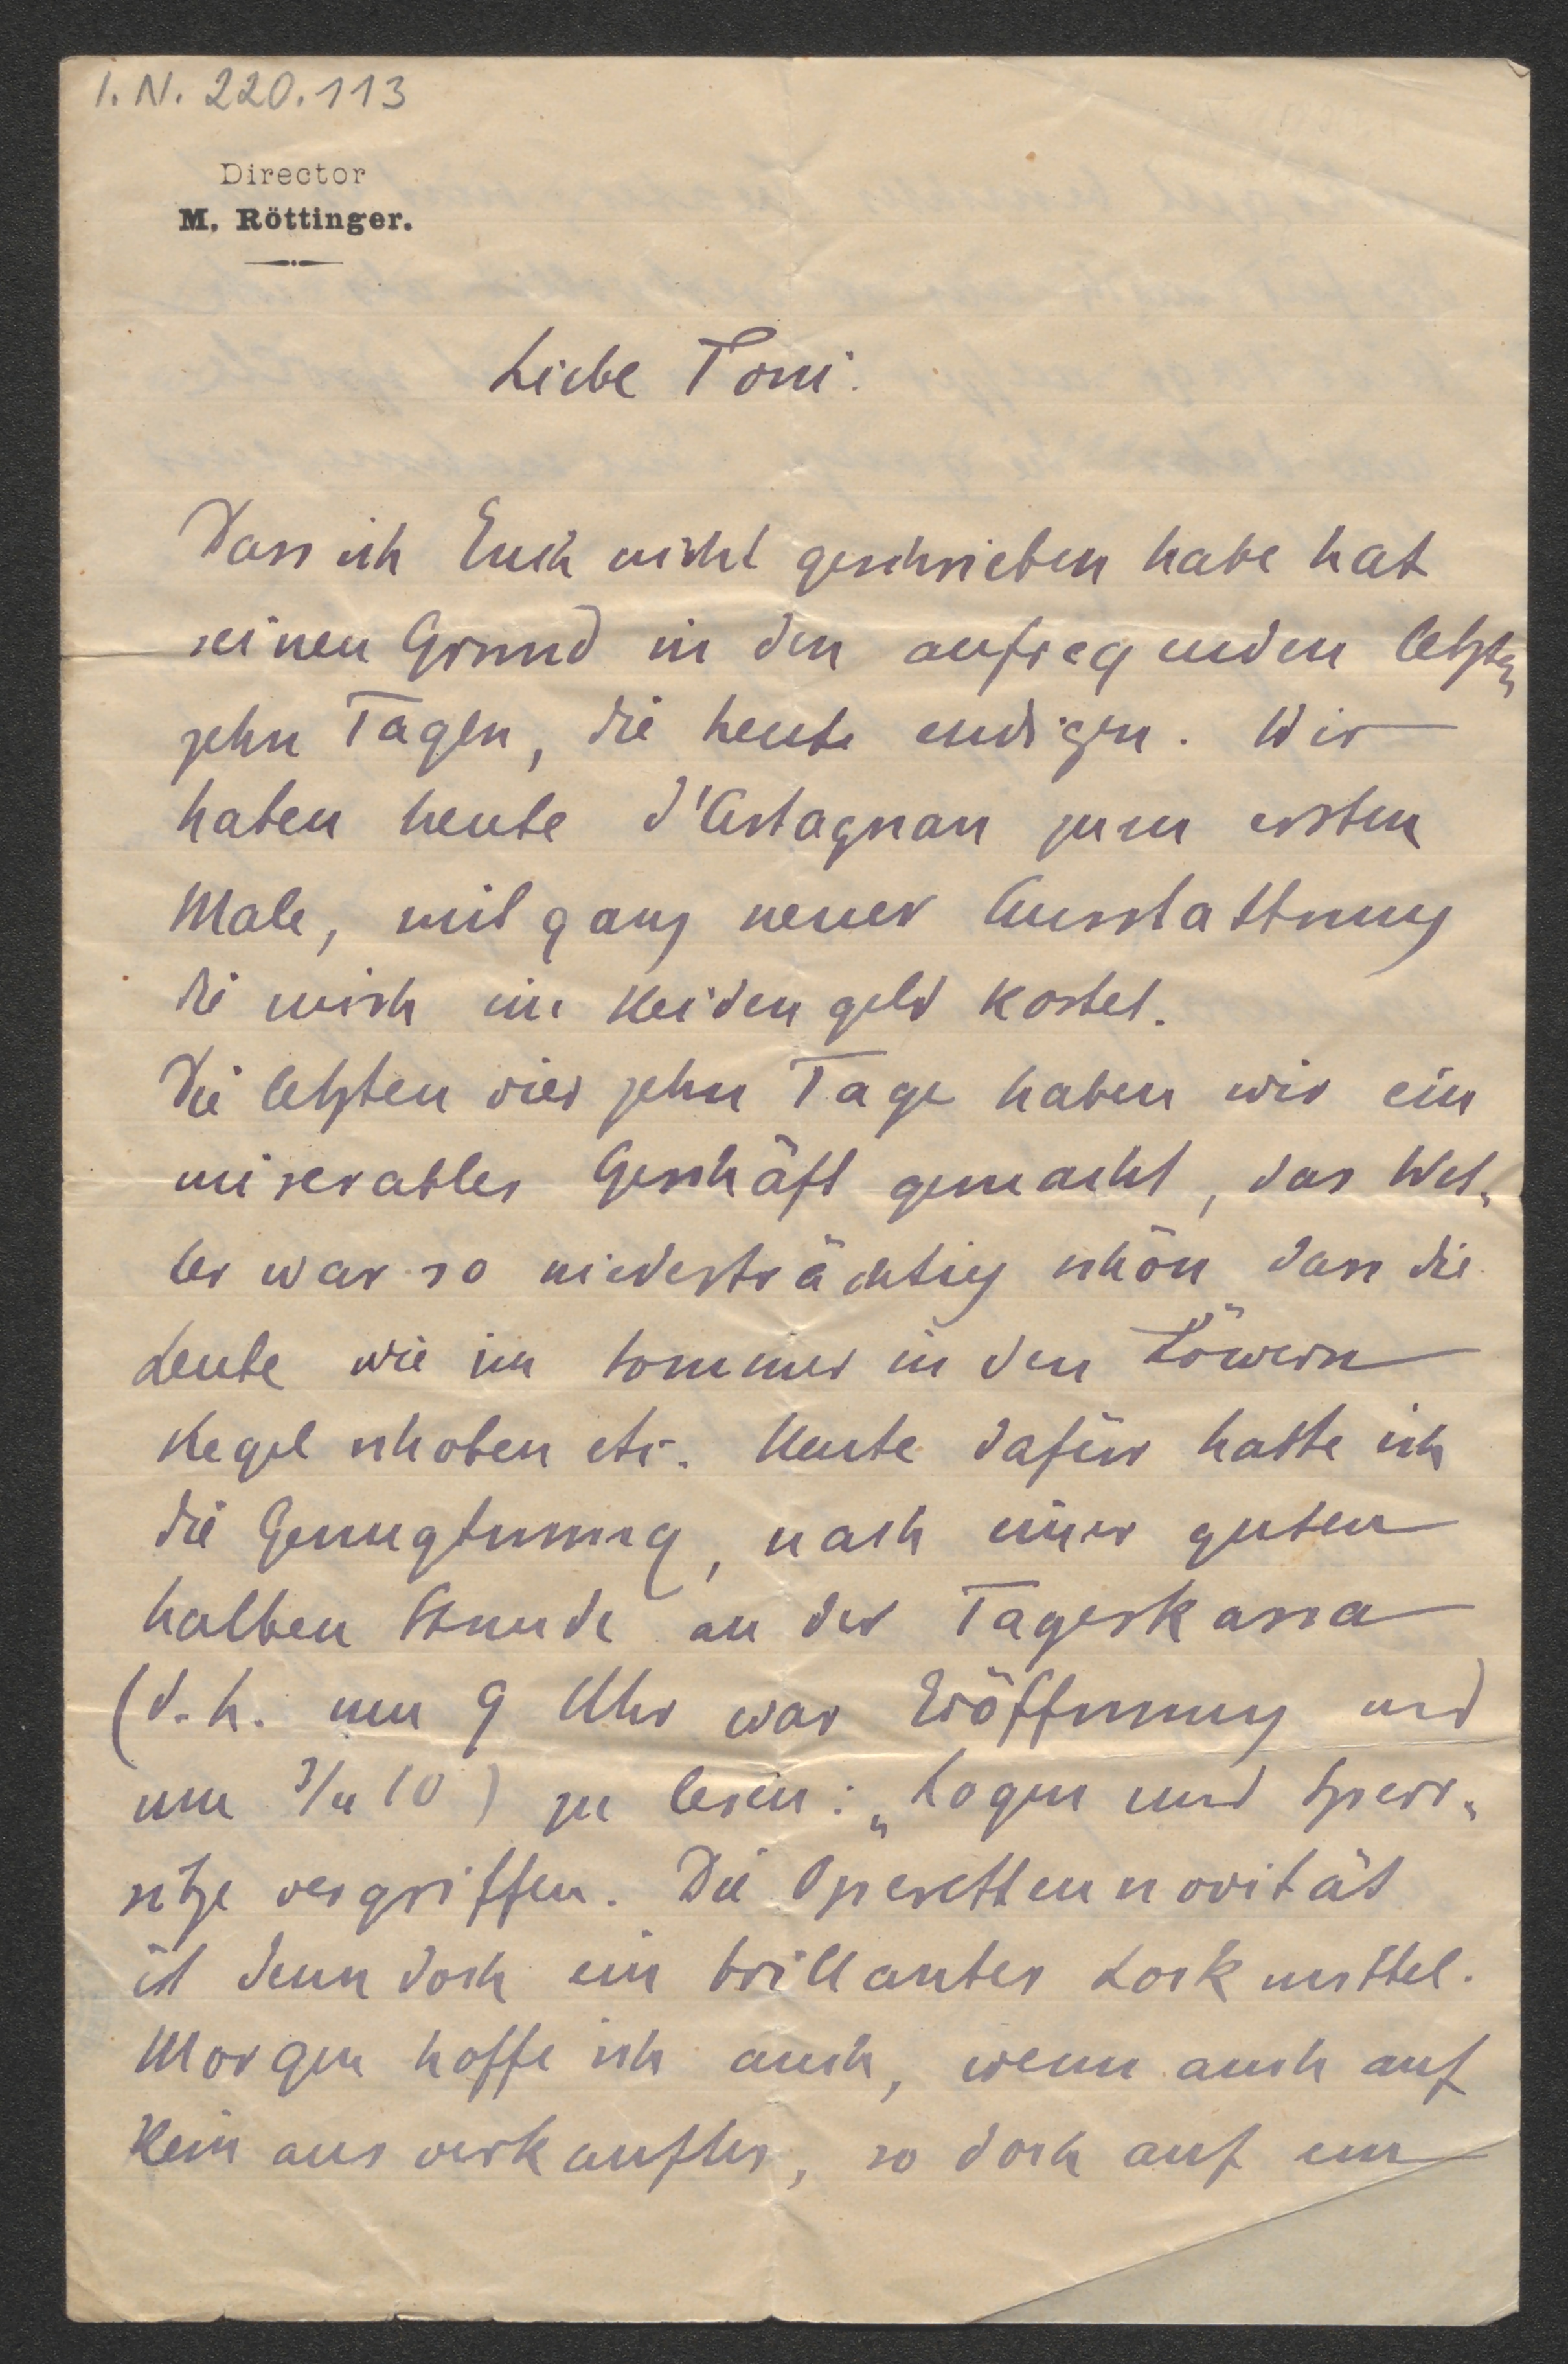 I. N. 220.113
Director
M. Röttinger.
Liebe Toni.
Dass ich Euch nicht geschrieben habe hat
seinen Grund in den aufregenden letzten
zehn Tagen, die heute endigen. Wir
haben heute d'Artagnan zum ersten
Male, mit ganz neuer Ausstattung
die mich ein Heidengeld kostet.
Die letzten vierzehn Tage haben wir ein
miserables Geschäft gemacht, das Wet„
ter war so niederträchtig schön dass die
Leute wie im Sommer in den Löwern
Kegel schoben etc. Heute dafür hatte ich
die Genugtuung, nach einer guten
halben Stunde an der Tageskassa
(d. h. um 9 Uhr war Eröffnung und
um 3/4 10) zu lesen: „Logen und Sperr„
sitze vergriffen. Die Operettennovität
ist denn doch ein brillantes Lockmittel.
Morgen hoffe ich auch, wenn auch auf
kein ausverkauftes, so doch auf ein